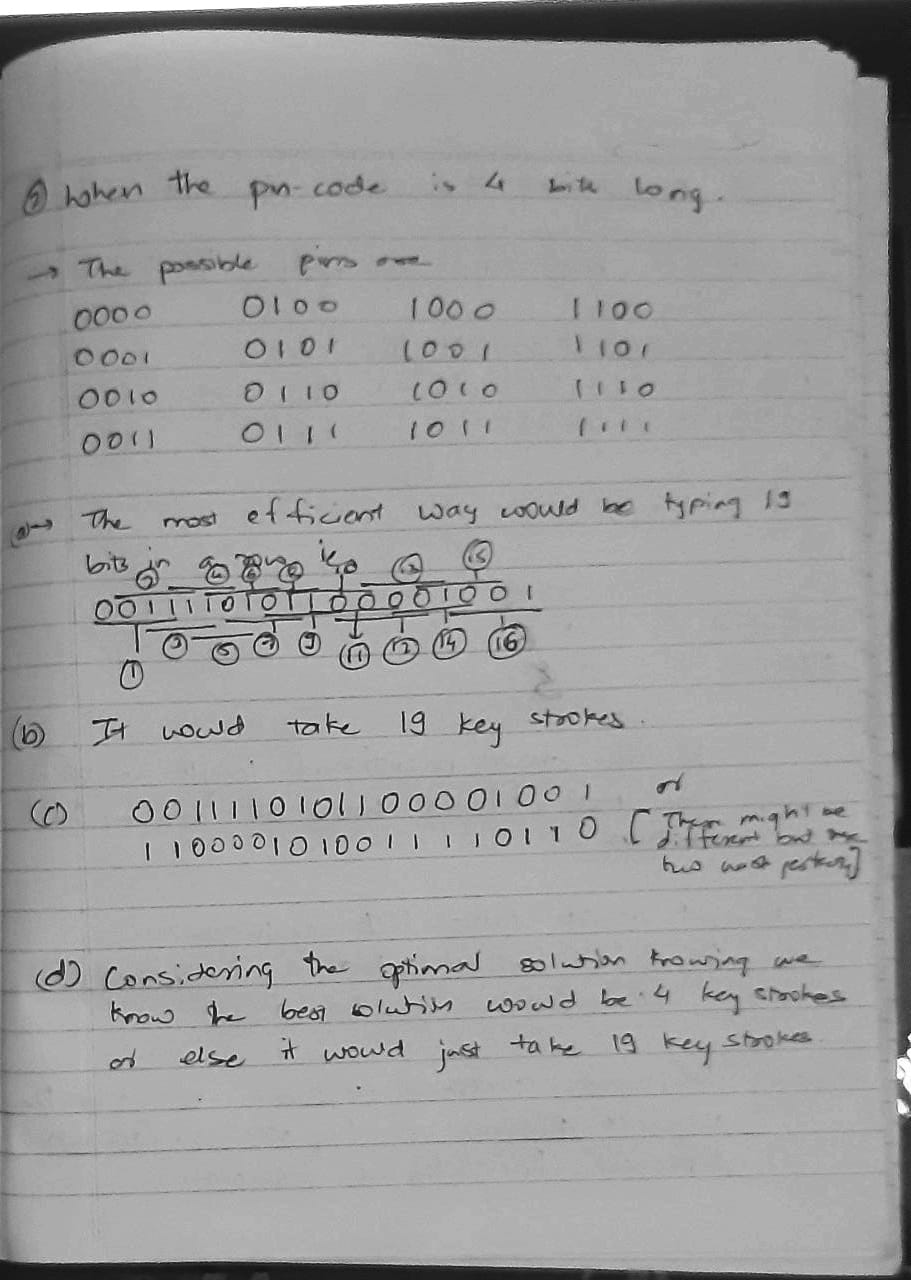 ② When the pin-code is 4 bits long.
→ The possible pins are
0000 0100 1000 1100
0001 0101 1001 1101
0010 0110 1010 1110
0011 0111 1011 1111
(a)→ The most efficient way would be typing 19
bits in
② ④ ⑥ ⑧ 10 ⑫ ⑮
0011110101100001001
① ③ ⑤ ⑦ ⑨ ⑪ ⑬ ⑭ ⑯
(b) It would take 19 key strokes.
(c) 0011110101100001001 or
1100001010011110110 [There might be
different but the
two most
(d) Considering the optimal solution knowing we
know the best solution would be 4 key strokes
or else it would just take 19 key strokes